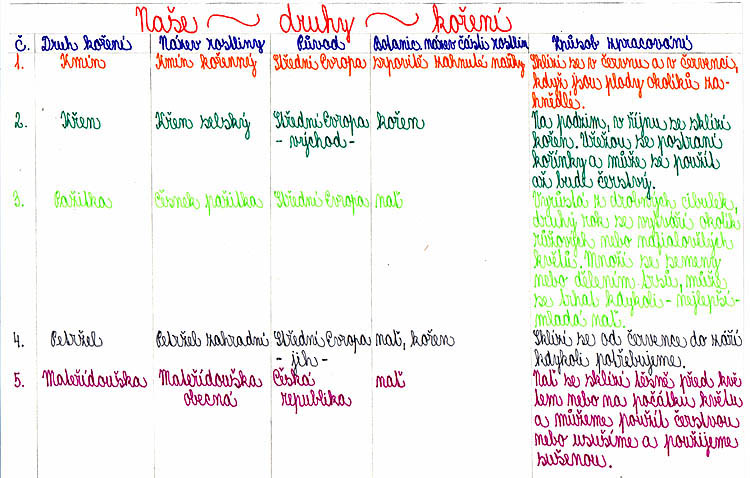 Naše ~ druhy ~ koření
Č. Druh koření Název rostliny Původ Botanic. název části rostlin Způsob zpracování
1. Kmín Kmín kořenný Střední Evropa srpovitě zahnuté nažky Sklízí se v červnu a v červenci,
když jsou plody okolíků za-
hnědlé.
2. Křen Křen selský Střední Evropa kořen Na podzim, v říjnu se sklízí
- východ - kořen. Uřežou se postraní
kořínky a může se použít
až bude čerstvý.
3. Pažitka Česnek pažitka Střední Evropa nať Vyrůstá z drobných cibulek,
druhý rok se vytváří okolík
růžových nebo nafialovělých
květů. Množí se semeny
nebo dělením trsů, může
se trhat kdykoli - nejlepší -
mladá nať.
4. Petržel Petržel zahradní Střední Evropa nať, kořen Sklízí se od července do září
- jih - kdykoli potřebujeme.
5. Mateřídouška Mateřídouška Česká nať Nať se sklízí těsně před kvě
obecná republika tem nebo na počátku květu
a můžeme použít čerstvou
nebo usušíme a použijeme
sušenou.